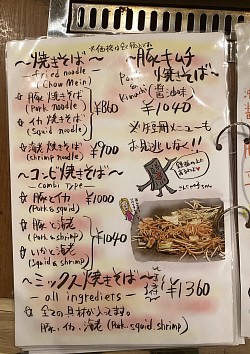 ※価格は全て税込
～焼きそば～
fried noodle
(Chow Mein)
☆ 豚焼きそば
(Pork noodle)
☆ イカ焼きそば
(Squid noodle)
¥860
☆ 海老焼きそば
(shrimp noodle)
¥900
～コンビ焼きそば～
— combi type —
☆ 豚とイカ
(Pork & squid)
¥1000
☆ 豚と海老
(Pork & shrimp)
☆ いかと海老
(Squid & shrimp)
¥1040
～豚キムチ
焼きそば～
Pork &
Kimuchi
(醤油味)
¥1040
メニューも
お見逃しなく!!
～ミックス焼きそば～
— all ingredients —
¥1360
☆ 全ての具材が入ってます。
豚、イカ、海老 (Pork, squid, shrimp)